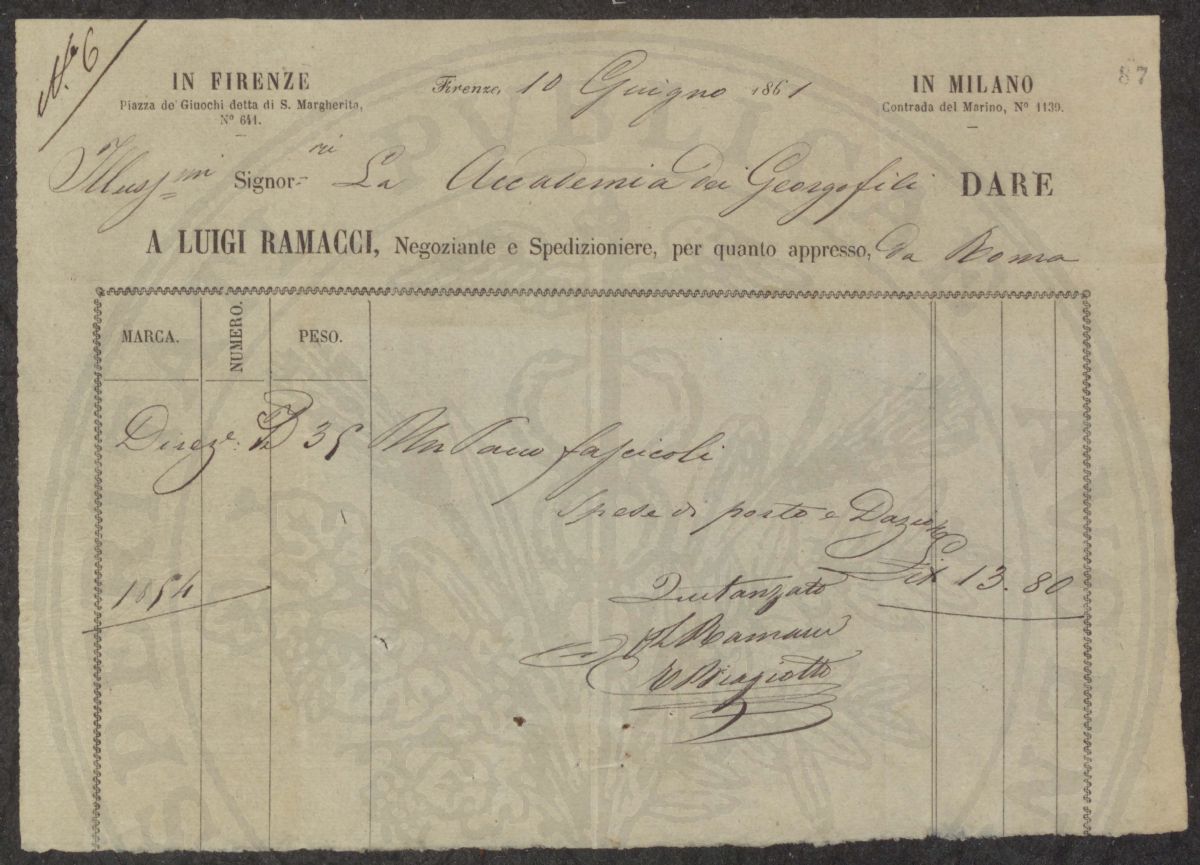 N. 6
87
IN FIRENZE
Piazza de' Giuochi detta di S. Margherita,
N° 641.
Firenze, 10 Giugno 1861
IN MILANO
Contrada del Marino, N° 1139.
Illuss.mi Signor.ri La Accademia dei Georgofili DARE
A LUIGI RAMACCI, Negoziante e Spedizioniere, per quanto appresso, da Roma
MARCA. NUMERO. PESO.
Direz.e 35 Un Pacco fascicoli
Spese di porto e Dazio
Lit 13.80
1854
Quitanzato
p L Ramacci
E Biagiotti